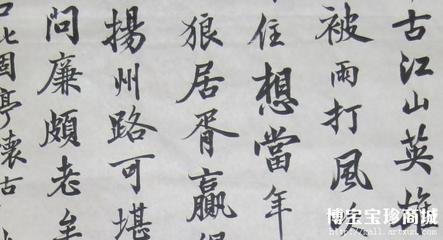 古江山英雄
被雨打風
住想當年
狼居胥贏得
揚州路可堪
問廉頗老矣
口北固亭懷古
博宝宝珍商城
http://mall.artxun.com